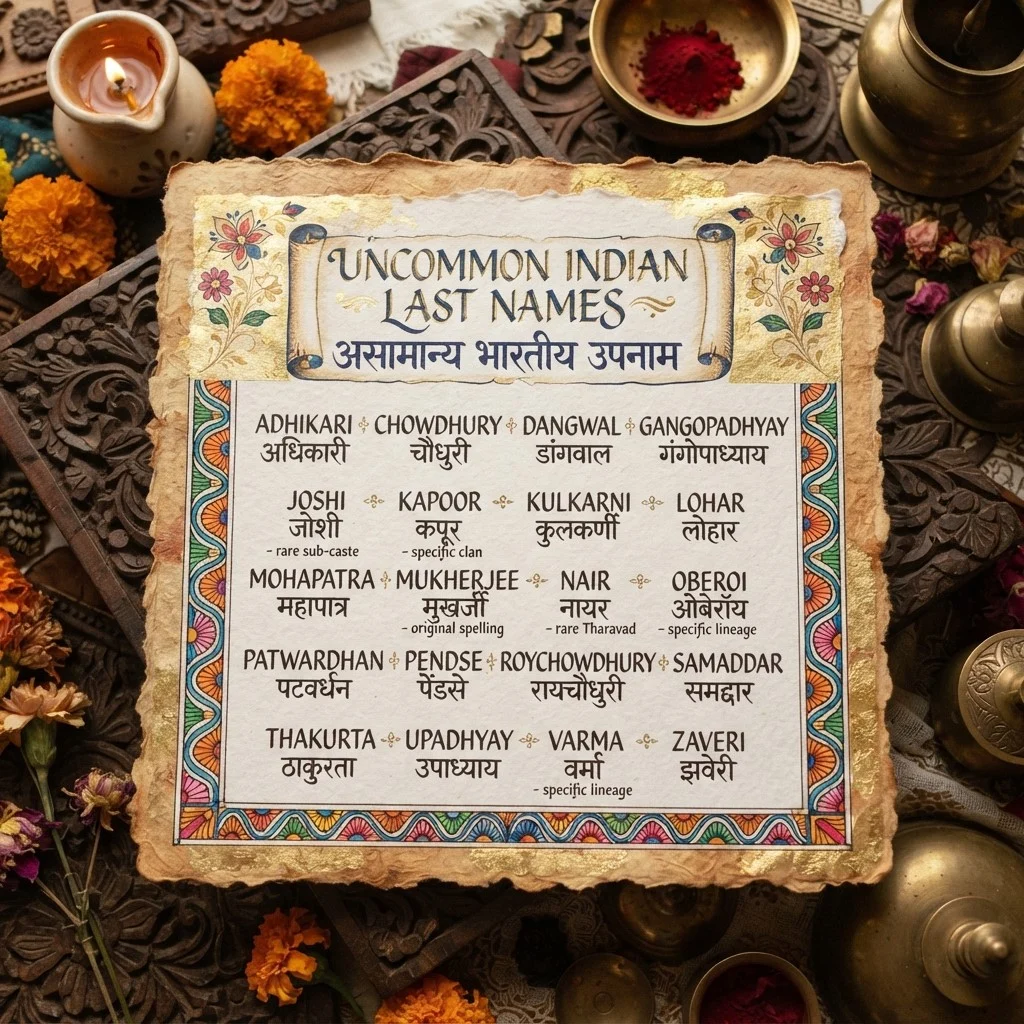 UNCOMMON INDIAN
LAST NAMES
असामान्य भारतीय उपनाम
ADHIKARI CHOWDHURY DANGWAL GANGOPADHYAY
अधिकारी चौधुरी डांगवाल गंगोपाध्याय
JOSHI KAPOOR KULKARNI LOHAR
जोशी कपूर कुलकर्णी लोहार
- rare sub-caste - specific clan
MOHAPATRA MUKHERJEE NAIR OBEROI
महापात्र मुखर्जी नायर ओबेरॉय
- original spelling - rare Tharavad - specific lineage
PATWARDHAN PENDSE ROYCHOWDHURY SAMADDAR
पटवर्धन पेंडसे रायचौधुरी समद्दार
THAKURTA UPADHYAY VARMA ZAVERI
ठाकुरता उपाध्याय वर्मा झवेरी
- specific lineage